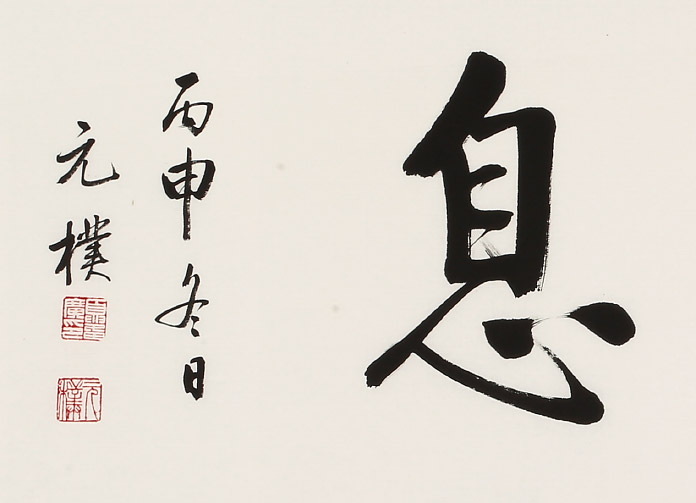 息
丙申冬日
元樸